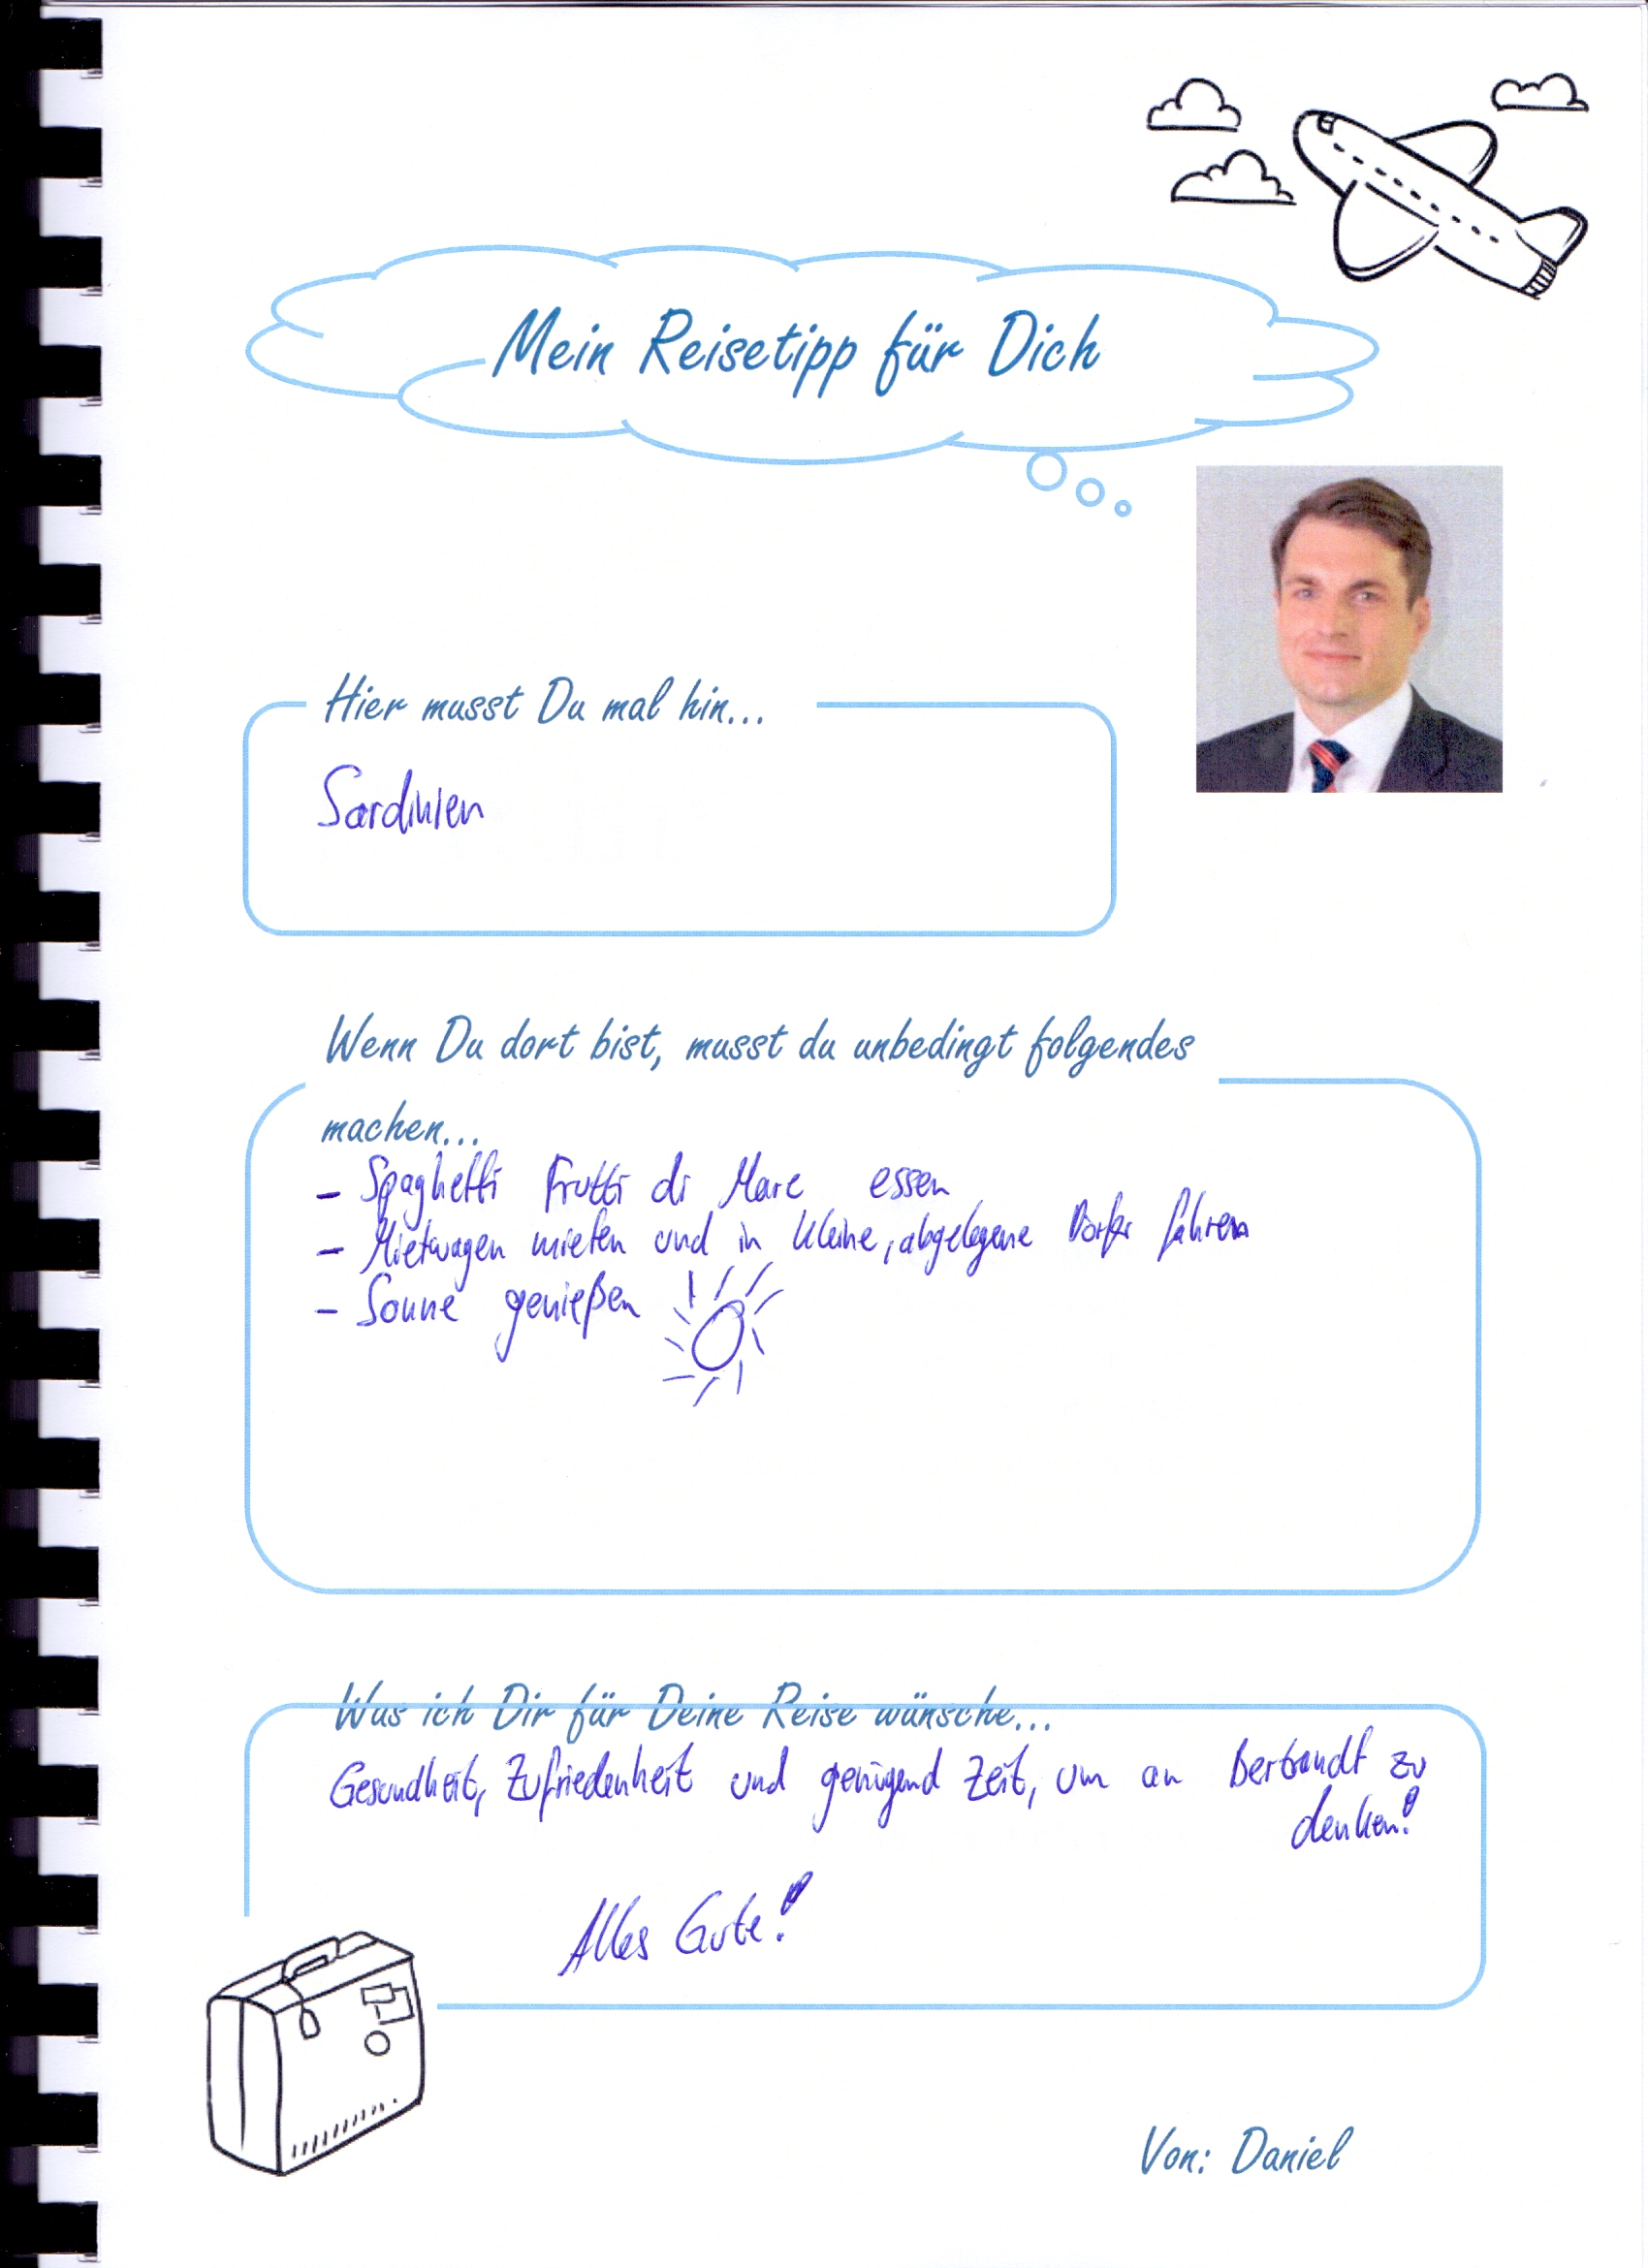 Mein Reisetipp für Dich
Hier musst Du mal hin...
Sardinien
Wenn Du dort bist, musst du unbedingt folgendes
machen...
- Spaghetti Frutti di Mare essen
- Mietwagen mieten und in kleine, abgelegene Dörfer fahren
- Sonne genießen
Was ich Dir für Deine Reise wünsche...
Gesundheit, Zufriedenheit und genügend Zeit, um an Bertrandt zu
denken!
Alles Gute!
Von: Daniel